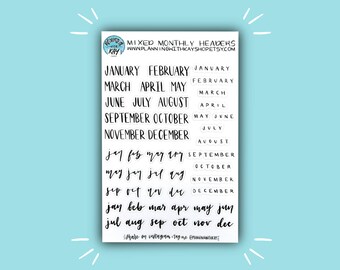 PLANNING WITH KAY
MIXED MONTHLY HEADERS
WWW.PLANNINGWITHKAYSHOP.ETSY.COM
JANUARY FEBRUARY
MARCH APRIL MAY
JUNE JULY AUGUST
SEPTEMBER OCTOBER
NOVEMBER DECEMBER
JANUARY
FEBRUARY
MARCH
APRIL
MAY JUNE
JULY
AUGUST
SEPTEMBER
OCTOBER
NOVEMBER
DECEMBER
jan feb mar apr
may jun jul aug
sep oct nov dec
jan feb mar apr may jun
jul aug sep oct nov dec